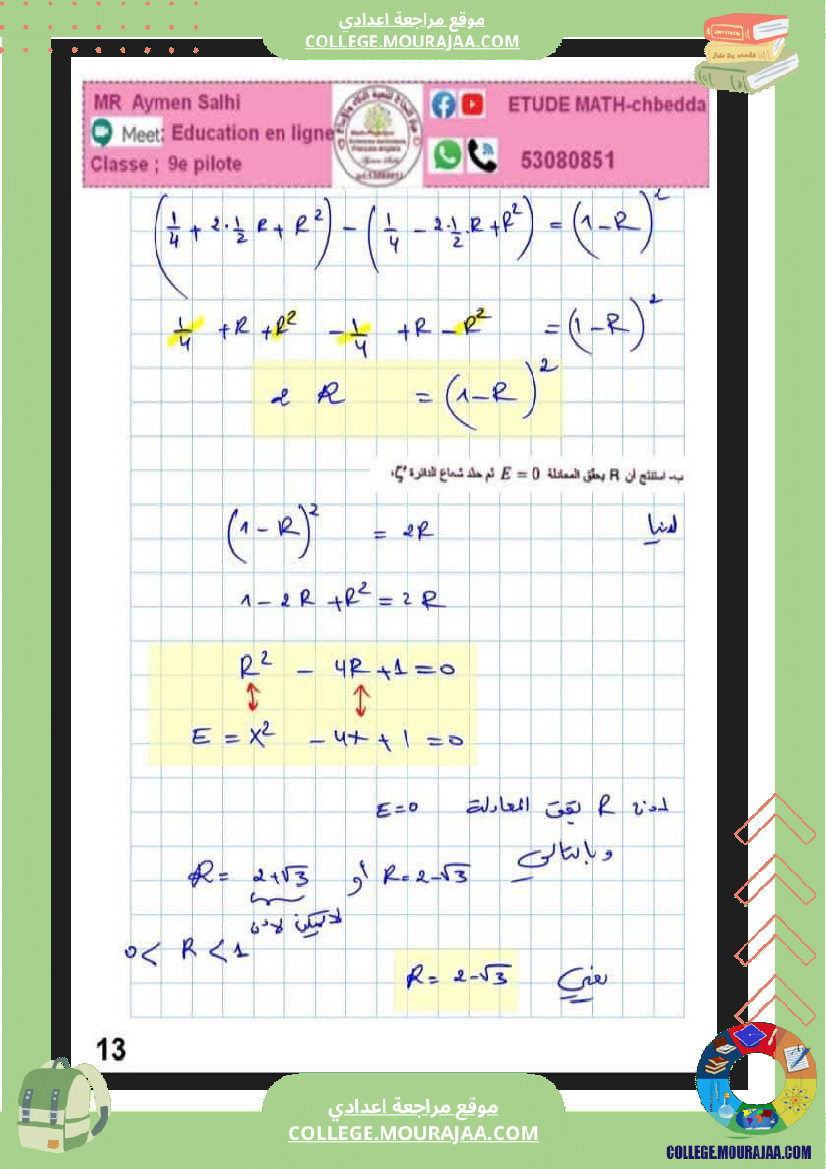 موقع مراجعة اعدادي
COLLEGE.MOURAJAA.COM
MR Aymen Salhi
Meet: Education en ligne
Classe ; 9e pilote
ETUDE MATH-chbedda
53080851
(1/4 + 2·1/2 R + R²) − (1/4 − 2·1/2·R + R²) = (1−R)²
1/4 + R + R² − 1/4 + R − R² = (1−R)²
2 R = (1−R)²
ب- استنتج أن R يحقق المعادلة E = 0 ثم حدد شعاع الدائرة ζ'
لدينا (1−R)² = 2R
1 − 2R + R² = 2R
R² − 4R + 1 = 0
E = x² − 4x + 1 = 0
اذن R يحقق المعادلة E=0
وبالتالي
R = 2+√3 أو R = 2−√3
لا يمكن لأن
0 < R < 1
يعني R = 2−√3
13
موقع مراجعة اعدادي
COLLEGE.MOURAJAA.COM
COLLEGE.MOURAJAA.COM